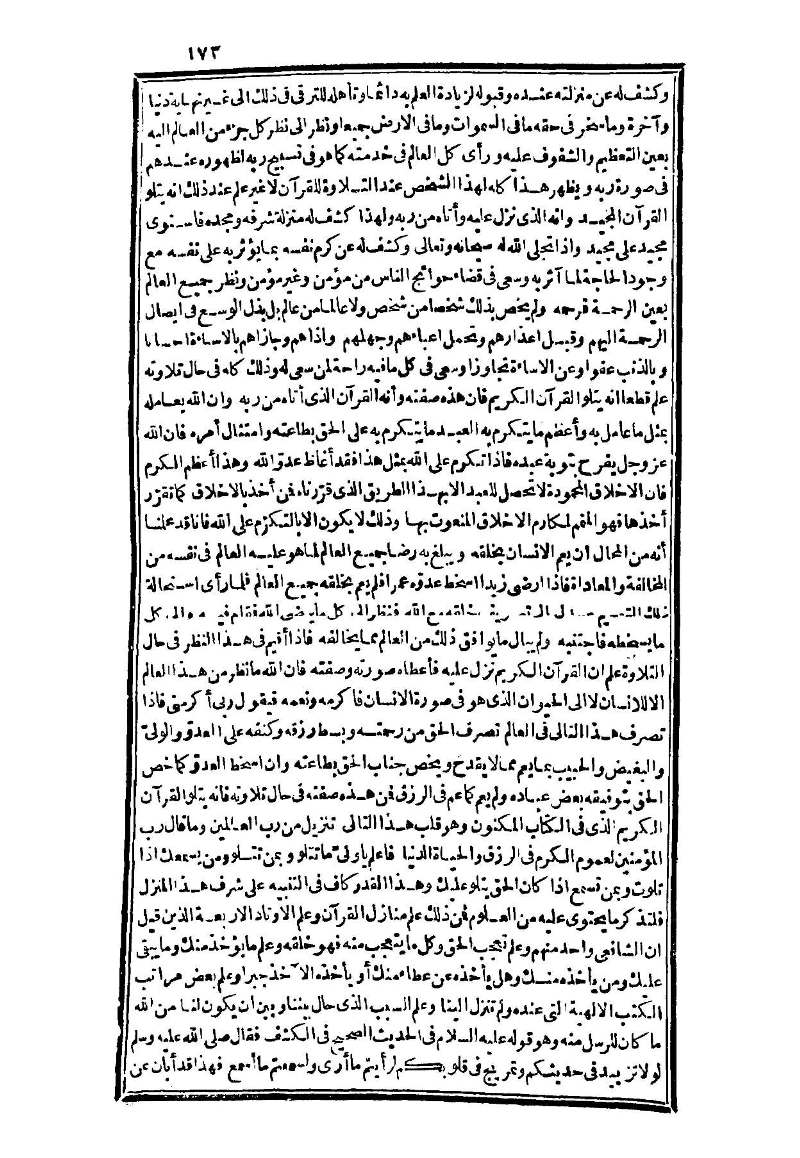 ١٧٣
وكشف له عن منزلته عنده وقبوله لزيادة العلم به دائما وتأهله للترقى فى ذلك الى غير نهاية دنيا
وآخرة وما سخر فى حقه ما فى السموات وما فى الارض جميعا ونظر الى نظر كل جزء من العالم اليه
بعين التعظيم والشفوف عليه ورأى كل العالم فى خدمته كما هو فى تسبيح ربه لظهوره عندهم
فى صورة ربه ويظهر هذا كله لهذا الشخص عند التلاوة للقرآن لا غير علم عند ذلك انه يتلو
القرآن المجيد وانه الذى نزل عليه وأتاه من ربه ولهذا كشف له منزلة شرفه ومجده فاستوى
مجيد على مجيد واذا تجلى الله له سبحانه وتعالى وكشف له عن كرم نفسه بما يؤثر به على نفسه مع
وجود الحاجة لما آثر به وسعى فى قضاء حوائج الناس من مؤمن وغير مؤمن ونظر جميع العالم
بعين الرحمة فرحمه ولم يخص بذلك شخصا من شخص ولا عالما من عالم بل بذل الوسع فى ايصال
الرحمة اليهم وقبل اعذارهم وتحمل اعباءهم وجهلهم واذاهم وجازاهم بالاساءة احسانا
وبالذنب عفوا وعن الاساءة تجاوزا وسعى فى كل ما فيه راحة لمن سعى له وذلك كله فى حال تلاوته
علم قطعا انه يتلو القرآن الكريم فان هذه صفته وأنه القرآن الذى أتاه من ربه وان الله يعامله
بمثل ما عامل به وأعظم ما يتكرم به العبد ما يتكرم به على الحق بطاعته وامتثال أمره فان الله
عز وجل يفرح بتوبة عبده فاذا تكرم على الله بمثل هذا فقد أغاظ عدو الله وهذا أعظم الكرم
فان الاخلاق المحمودة لا تحصل للعبد الا بهذا الطريق الذى قررناه فمن أخذ بالاخلاق كما تقرر
أخذها فهو المتمم لمكارم الاخلاق المنعوت بها وذلك لا يكون الا بالتكرم على الله فانا قد علمنا
أنه من المحال ان يعم الانسان بخلقه ويبلغ به رضا جميع العالم لما هو عليه العالم فى نفسه من
المخالفة والمعاداة فاذا ارضى زيدا اسخط عدوه عمرا فلم يعم بخلقه جميع العالم فلما رأى استحالة
ذلك التعميم مع الله فنظر الى كل ما يرضى الله فقام فيه والى كل
ما يسخطه فاجتنبه ولم يبال ما يوافق ذلك من العالم مما يخالفه فاذا أقيم فى هذا النظر فى حال
التلاوة علم ان القرآن الكريم نزل عليه فأعطاه صورته وصفته فان الله ما نظر من هذا العالم
الا للانسان لا الى الحيوان الذى هو فى صورة الانسان فأكرمه ونعمه فيقول ربى أكرمنى فاذا
تصرف هذا التالى فى العالم تصرف الحق من رحمته وبسط رزقه وكنفه على العدو والولى
والبغيض والحبيب بما يعم مما لا يقدح ويخص جناب الحق بطاعته وان اسخط العدو كما خص
الحق بتوفيقه بعض عباده ولم يعم كما عم فى الرزق فمن هذه صفته فى حال تلاوته فانه يتلو القرآن
الكريم الذى فى الكتاب المكنون وهو قلب هذا التالى تنزيل من رب العالمين وما قال رب
المؤمنين لعموم الكرم فى الرزق والحياة الدنيا فاعلم يا ولى ما تتلو وبمن تتلو ومن يسمعك اذا
تلوت وبمن تسمع اذا كان الحق يتلو عليك وهذا القدر كاف فى التنبيه على شرف هذا المنزل
فلنذكر ما يحتوى عليه من العلوم فمن ذلك علم منازل القرآن وعلم الأوتاد الاربعة الذين قيل
ان الشافعى واحد منهم وعلم تعجب الحق وكل ما يتعجب منه فهو خلقه وعلم ما يؤخذ منك وما يبقى
عليك ومن يأخذه منك وهل يأخذه عن عطاء منك أو يأخذه الآخذ جبرا وعلم بعض مراتب
الكتب الالهية التى عنده ولم تنزل الينا وعلم السبب الذى حال بيننا وبين ان يكون لنا من الله
ما كان للرسل منه وهو قوله عليه السلام فى الحديث الصحيح فى الكشف فقال صلى الله عليه وسلم
لولا تزييد فى حديثكم وتمريج فى قلوبكم لرأيتم ما أرى ولسمعتم ما أسمع فهذا قد أبان عن